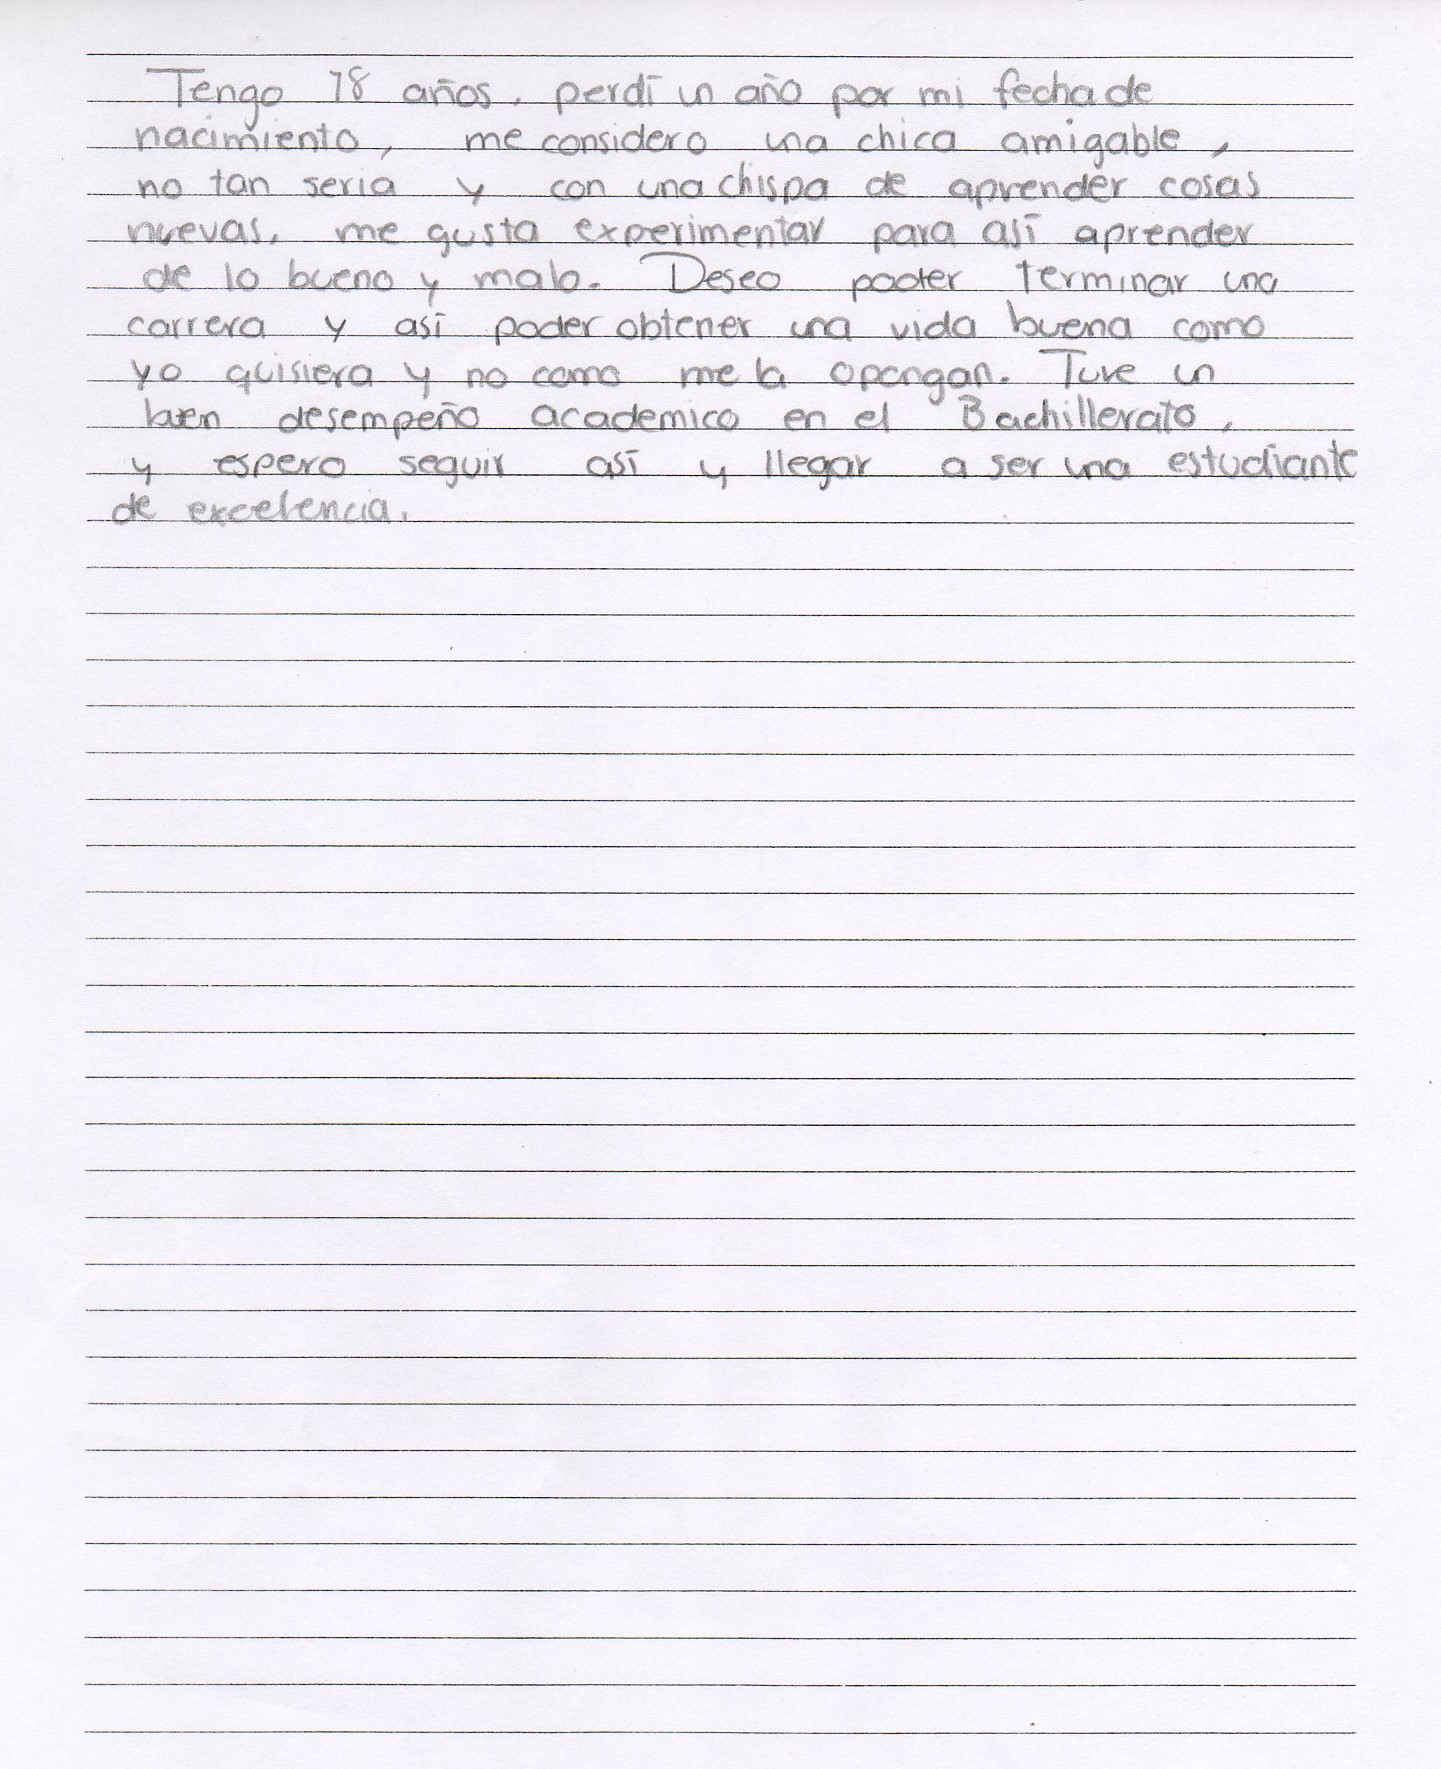 Tengo 18 años, perdí un año por mi fecha de
nacimiento, me considero una chica amigable,
no tan seria y con una chispa de aprender cosas
nuevas, me gusta experimentar para así aprender
de lo bueno y malo. Deseo poder terminar una
carrera y así poder obtener una vida buena como
yo quisiera y no como me la opongan. Tuve un
buen desempeño academico en el Bachillerato,
y espero seguir así y llegar a ser una estudiante
de excelencia.